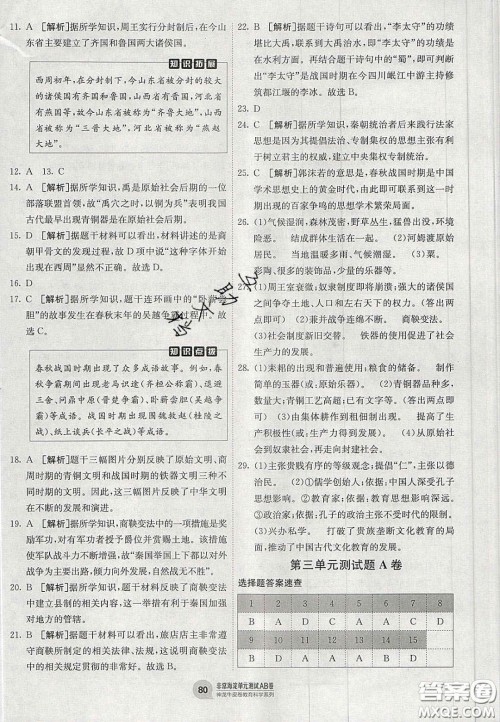 11. A [解析]据所学知识，周王实行分封制后，在今山
东省主要建立了齐国和鲁国两大诸侯国。
知识拓展
西周初年，在分封制下，今山东省被分封的较大
的诸侯国有齐国和鲁国，山西省有晋国，河北省
有燕国等，故今天山东省被称为“齐鲁大地”，山
西省被称为“三晋大地”，河北省被称为“燕赵
大地”。
12. A 13. C
14. A [解析]据所学知识，禹是原始社会后期的一位
部落联盟首领，故“禹穴之时，以铜为兵”表明我国
古代最早出现青铜器是在原始社会末期。
15. D [解析]据题干材料可以看出，材料讲述的是商
朝甲骨文的发现过程，故 D 项中说“这种字体开始
出现的朝代”是正确的。故选 D。
16. D
17. C [解析]据所学知识，题干连环画中的“卧薪尝
胆”的故事发生在春秋末年的吴越争霸过程中，故
选 C。
知识点拨
春秋战国时期出现了众多成语故事。例如，春
秋时期出现的老马识途(齐桓公称霸)、退避三
舍、问鼎中原(晋楚争霸)、卧薪尝胆(吴越争霸)
等成语。战国时期出现围魏救赵(桂陵之
战)、纸上谈兵(长平之战)等成语。
18. A [解析]题干三幅图片分别反映了原始文明、商
周时期的青铜文明和战国时期的铁器文明三种不
同的文明。因此，这三幅图片反映了中华文明在
不断的发展与演进。
19. A [解析]据所学知识，商鞅变法中的一项措施是奖
励军功，对有军功者授予爵位并赏赐土地，这一措
施使军队战斗力大为提高，故“秦国举国上下都以此
为终身目标，倾力向前，奋力杀敌，勇不可当”。
20. A [解析]据所学知识，题干材料反映了商鞅变法
中建立县制的相关内容，这一举措有利于秦国加强
对地方的管辖。
21. B [解析]据题干材料可以看出，旅店店主非常遵
守相关的法律、法规，这说明商鞅变法的相关规定
贯彻的非常好。故选 B。
22. B [解析]据题干诗句可以看出，“李太守”的功绩
堪比大禹，联系所学知识可知，“李太守”的主要贡
献是在水利方面。再结合题干诗句中的“蜀”，可以
看出，其反映了是战国时期在今四川岷江中游主持修
筑都江堰的李冰。故选 B。
23. D
24. C [解析]据所学知识，秦朝统治者后来践行法家
思想是因为其提倡法治、专制、集权等思想，有利于
建立中央集权专制统治。
25. C [解析]郭沫若的意思是，春秋战国时期是中国
学术思想史上的黄金时代，由此即可联系到这一时
期出现的百家争鸣的思想学术繁荣局面。
26. (1)气候湿润，森林茂密，野草丛生，猛兽出没，环境
险恶。 结成群体生活在一起。 (2)河姆渡原始
居民。 气候温暖湿润，水源丰富。 (3)粟。
彩陶。 磨制石器、少量的乐器等。
27. (1)周王室衰微，诸侯国势力增强；强大的诸侯国
之间争夺土地、人口和对其他诸侯国的支配权。
(答出两点即可) (2)秦国。 商鞅变法。
(3)社会制度新旧交替。 铁器的使用提高了社会
生产力。
28. (1)圈底陶器的主要用途：粮食的储备。 制陶
使用的工具：陶轮。 最早开始于距今一万多年
的原始社会。 (2)青铜器品种多，既有大型的，也
有小型的；制造工艺高超。(答出任意两点即可)
(3)原始社会的瓦解和奴隶社会的形成。 从奴隶
社会开始向封建社会过渡。
29. (1)主张贵贱有序的等级观念；提倡“仁”，主张以德
治民。 (2)主张以法治国，树立君主的权威，建立
中央集权的国家。 (3)兴办私学。 打破了贵族垄断文化教育的局面，推动了中国古代文化教育的发展。
第三单元测试题 A 卷
选择题答案速查
1 2 3 4 5 6 7 8
B A D C D D C B
9 10 11 12 13 14 15
D D A B D A D
80
非常海淀单元测试AB卷
神龙牛皮卷教育科学系列